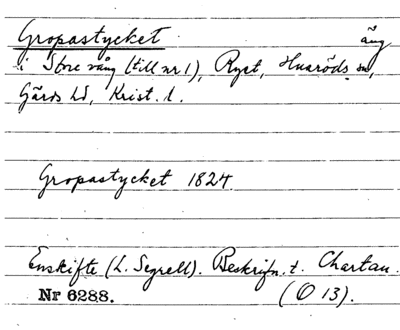 Gropastycket äng
i Store vång (till nr 1), Ryet, Huaröds sn,
Gärds hd, Krist. l.
Gropastycket 1824
Enskifte (L. Segrell). Beskrifn. t. Chartan.
Nr 6288. (O 13).